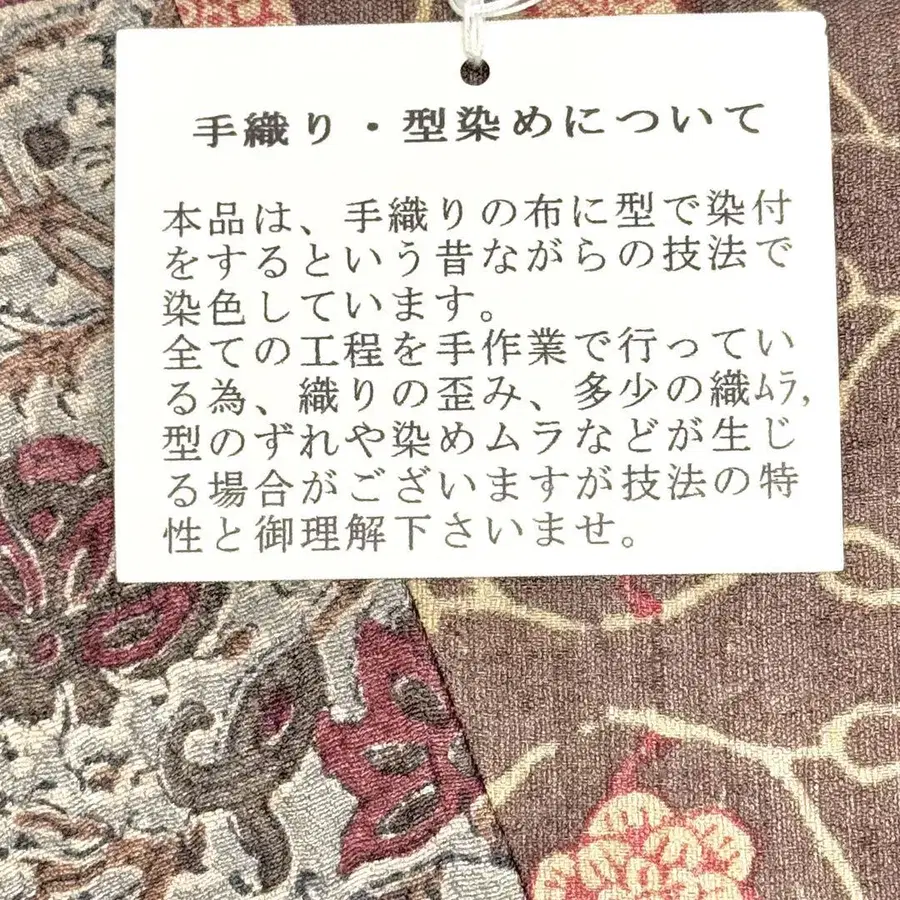 手織り・型染めについて
本品は、手織りの布に型で染付
をするという昔ながらの技法で
染色しています。
全ての工程を手作業で行ってい
る為、織りの歪み、多少の織ﾑﾗ,
型のずれや染めムラなどが生じ
る場合がございますが技法の特
性と御理解下さいませ。